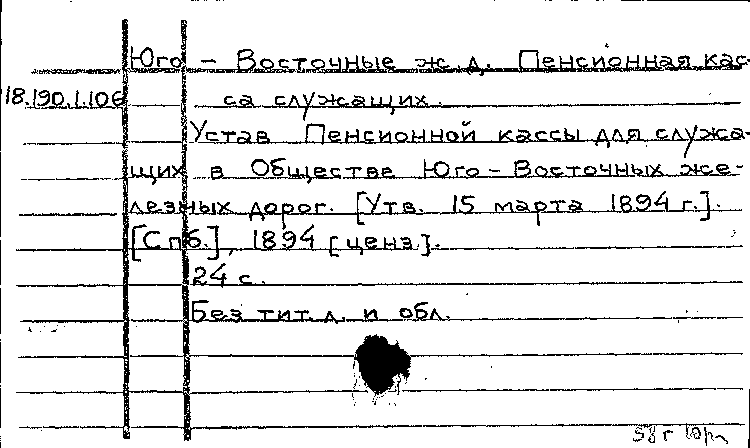 Юго - Восточные ж.д. Пенсионная кас-
18.190.1.106 са служащих.
Устав Пенсионной кассы для служа-
щих в Обществе Юго-Восточных же-
лезных дорог. [Утв. 15 марта 1894 г.].
[Спб.], 1894 [ценз.].
24 с.
Без тит. л. и обл.
58 г